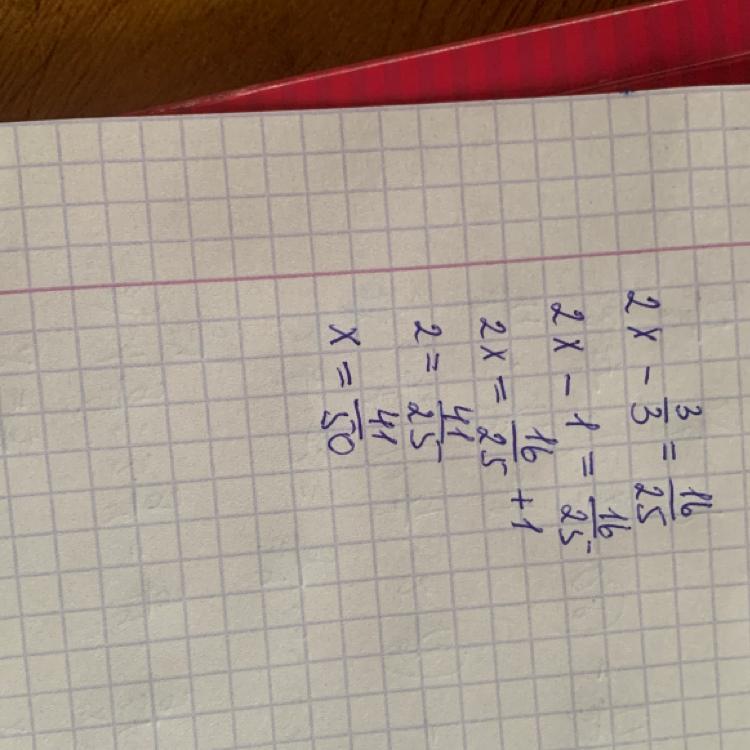 2x - 3/3 = 16/25
2x - 1 = 16/25
2x = 16/25 + 1
2 = 41/25
x = 41/50